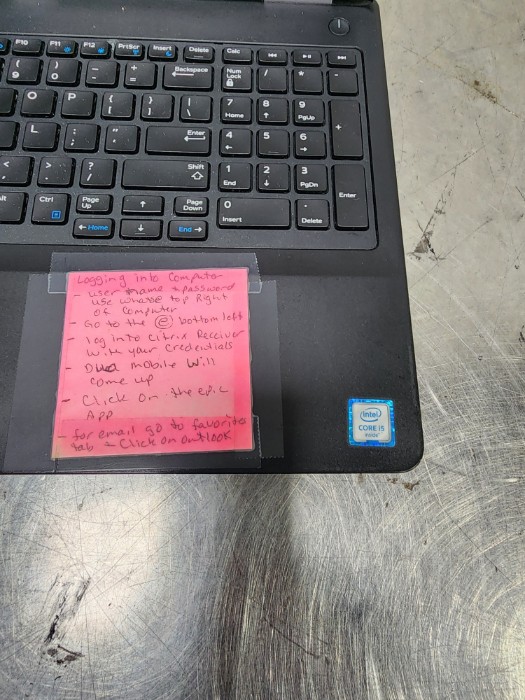 F10 F11 F12 PrtScr Insert Delete Calc
( 9 ) 0 _ - + = Backspace Num Lock / * -
O P { [ } ] | \ 7 Home 8 9 PgUp +
L : ; " ' Enter 4 5 6
< , > . ? / Shift 1 End 2 3 PgDn Enter
Alt Ctrl Page Up Page Down 0 Insert . Delete
Home End
Logging into Computer
- user name + password
use whats top Right
of computer
- Go to the e bottom left
- log into citrix Receiver
with your credentials
- Dua mobile will
come up
- Click on the epic
App
- for email go to favorite
tab - Click on outlook
intel
CORE i5
inside